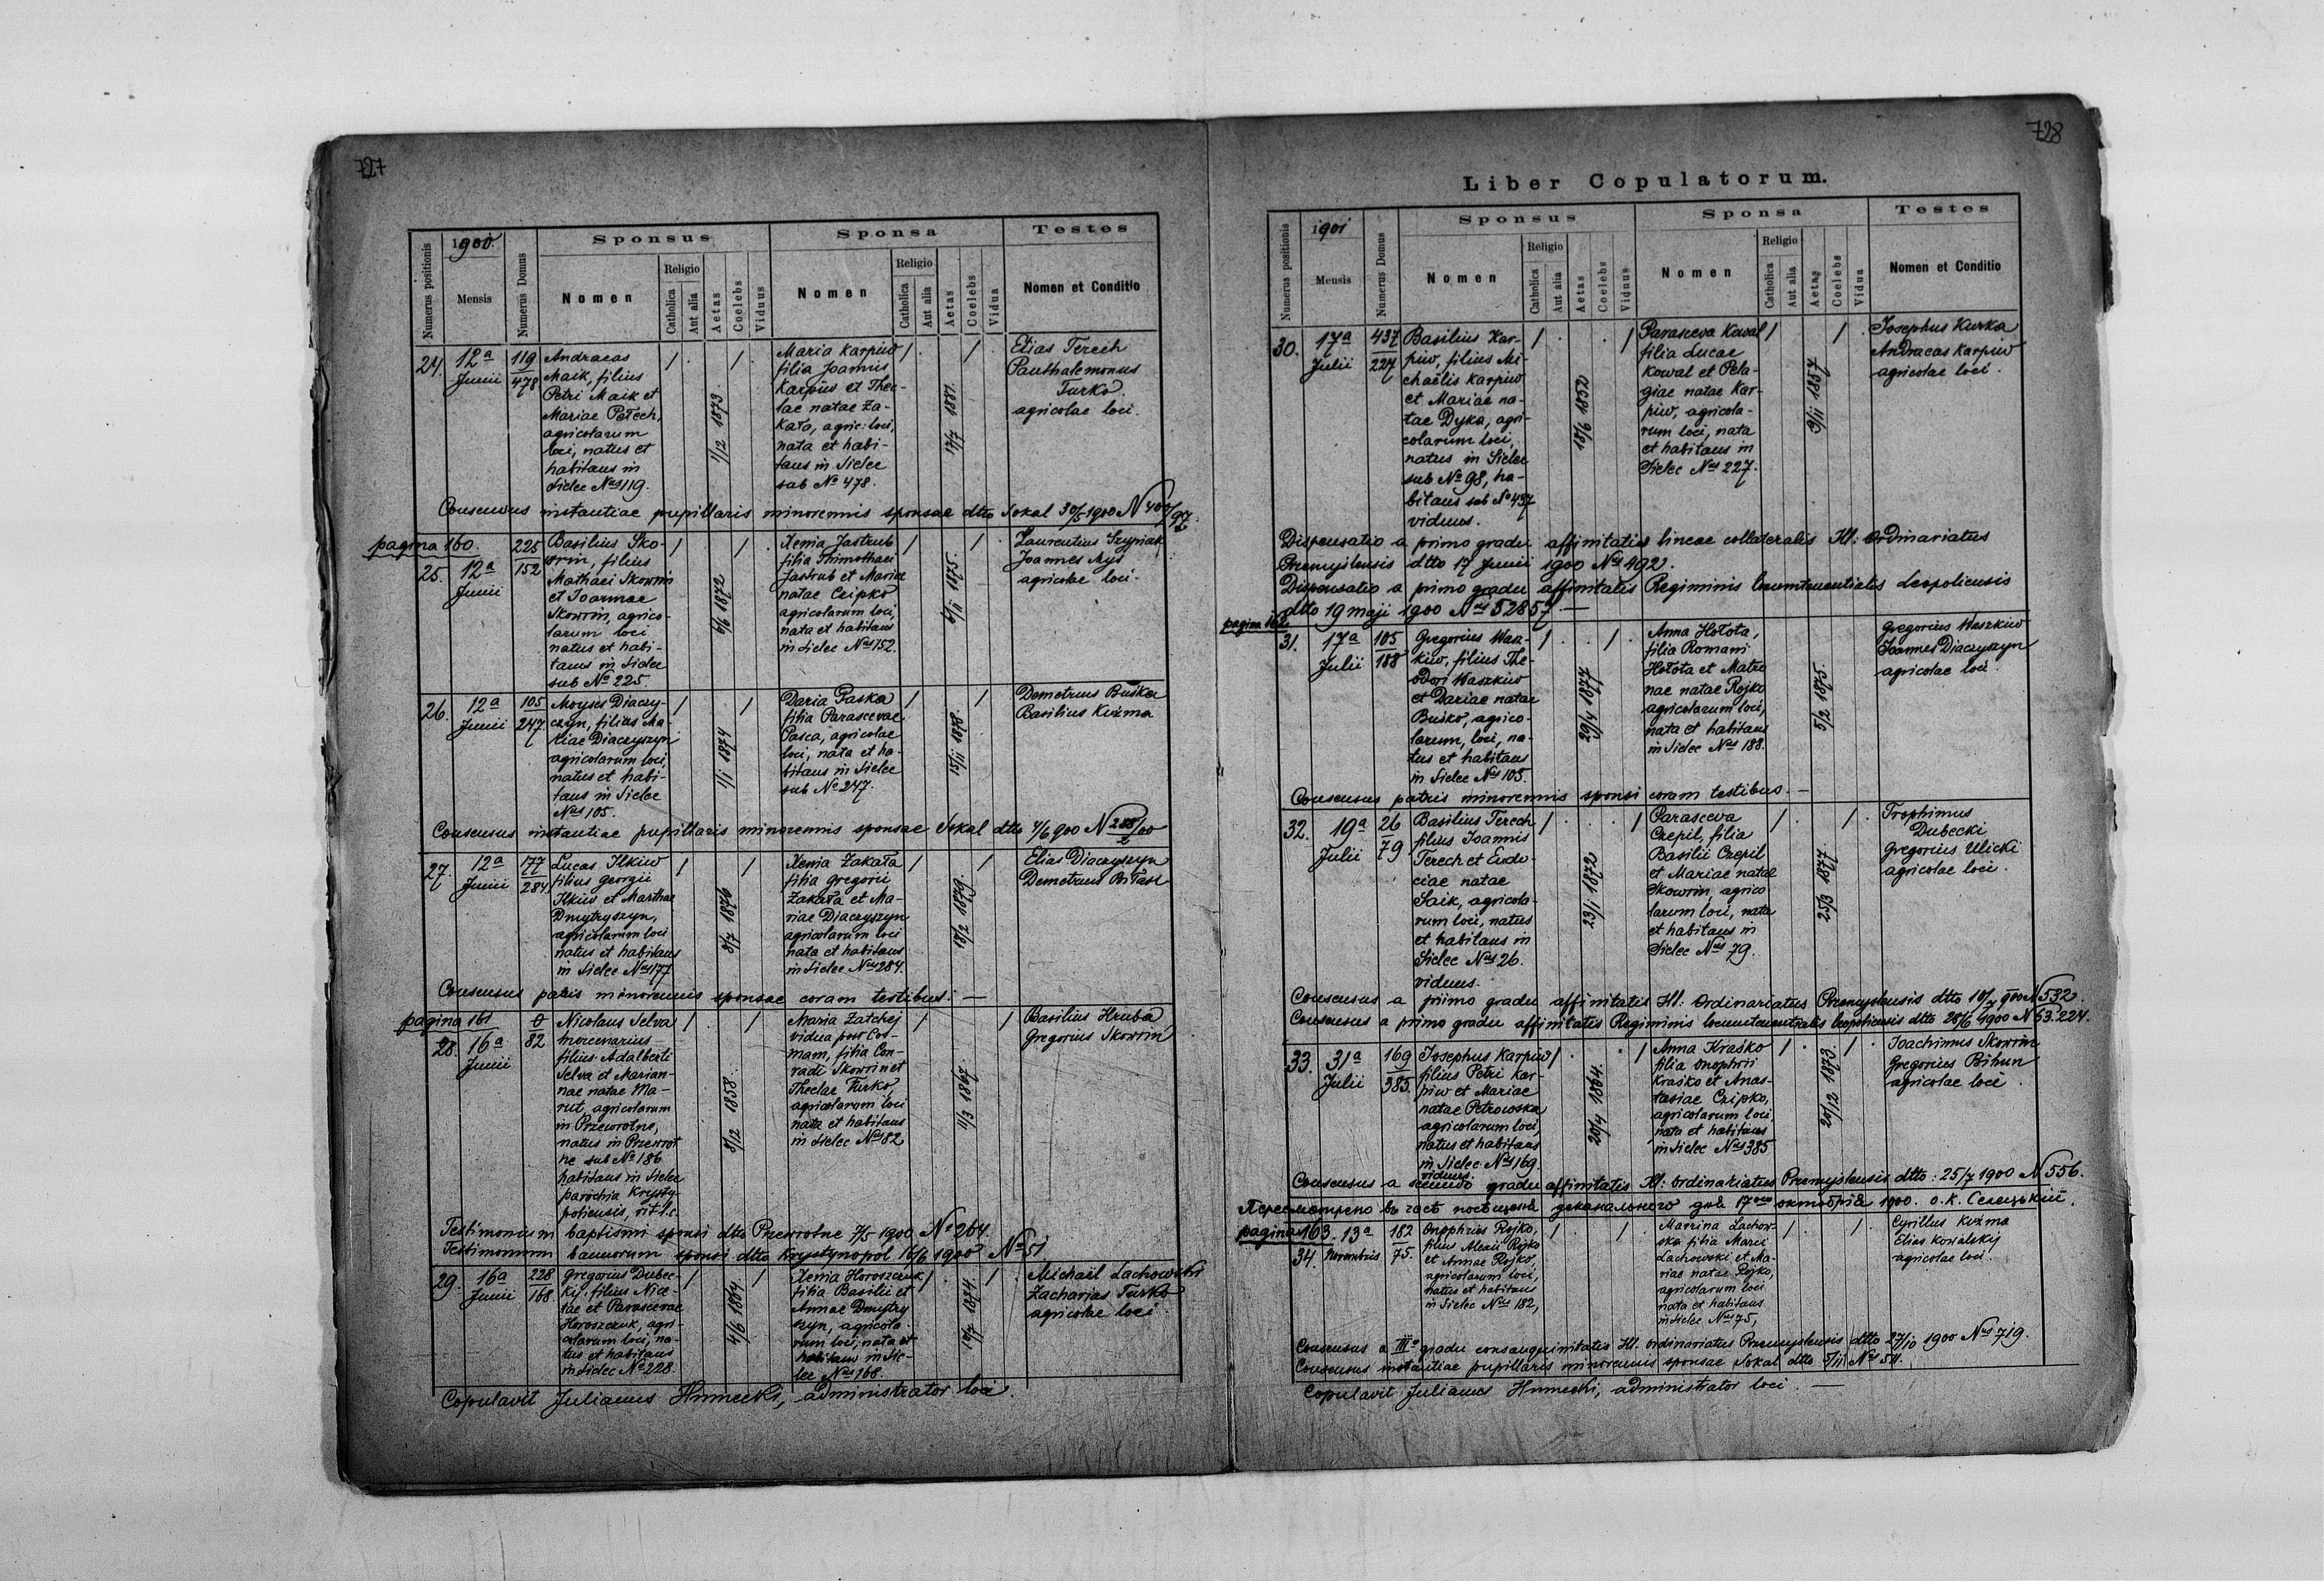 727
1900.
Numerus positionis
Mensis
Numerus Domus
Sponsus
Nomen
Religio
Catholica
Aut alia
Aetas
Coelebs
Viduus
Sponsa
Nomen
Religio
Catholica
Aut alia
Aetas
Coelebs
Vidua
Testes
Nomen et Conditio
24.
12a
Junii
119
478
Andraeas
Maik, filius
Petri Maik et
Mariae Pałech,
agricolarum
loci, natus et
habitans in
Sielec Nus 119.
1/12 1873
Maria Karpiw
filia Joannis
Karpiw et Thec-
lae natae Za-
kała, agric: loci,
nata et habi-
tans in Sielec
sub No 478.
17/7 1881.
Elias Terech
Panthalemonus
Turko
agricolae loci.
Consensus instantiae pupillaris minorennis sponsae dtto Sokal 30/5 1900 N
pagina 160.
25.
12a
Junii
225
152
Basilius Sko-
wrin, filius
Mathaei Skowrin
et Joannae
Skowrin, agrico-
larum loci
natus et habi-
tans in Sielec
sub No 225
6/6 1872
Xenia Jastrub
filia Thimothaei
Jastrub et Mariae
natae Czipko
agricolarum loci,
nata et habitans
in Sielec Nus 152.
6/11 1875.
Laurentius Szypiak
Joannes Mys
agricolae loci.
26.
12a
Junii
105
247.
Moyses Diaczy-
szyn, filius Ma-
riae Diaczyszyn
agricolarum loci,
natus et habi-
tans in Sielec
Nus 105.
1/1 1874
Daria Paska
filia Parascevae
Pasca, agricolae
loci, nata et ha-
bitans in Sielec
sub No 247.
15/11 1878.
Demetrius Buśka
Basilius Kuzma
Consensus instantiae pupillaris minorennis sponsae Sokal dtto 4/6 900 N
27.
12a
Junii
177
284
Lucas Ilkiw
filius Georgii
Ilkiw et Marthae
Dmytryszyn,
agricolarum loci
natus et habitans
in Sielec Nus 177
8/7 1876
Xenia Zakała
filia Gregorii
Zakała et Ma-
riae Diaczyszyn
agricolarum loci
nata et habitans
in Sielec Nus 284.
18/2 1879.
Elias Diaczyszyn
Demetrius
Consensus patris minorennis sponsae coram testibus. —
pagina 161
28.
16a
Junii
0
82
Nicolaus Selva
mercenarius
filius Adalberti
Selva et Marian-
nae natae Ma-
rut, agricolarum
in Przewrotne,
natus in Przewrot
ne sub No 186
habitans in Sielec
parochia Krysty-
poliensis, rit. l.
8/12 1858.
Maria Zatchej
vidua post Cos-
mam, filia Con-
radi Skowrin et
Theclae Turko
agricolarum loci
nata et habitans
in Sielec Nus 82
11/3 1867.
Basilius Hruba
Gregorius Skowrin
Testimonium baptismi sponsi dtto Przewrotne 7/5 1900 No 264.
Testimonium bannorum sponsi dtto Krystynopol 16/6 1900 No 51
29.
16a
Junii
228
168.
Gregorius Dubec-
kij, filius Nice-
tae et Parascevae
Horoszczuk, agri-
colarum loci, na-
tus et habitans
in Sielec No 228.
4/6 1864
Xenia Horoszczuk
filia Basilii et
Annae Dmytry
szyn, agricola-
rum loci, nata et
habitans in Sie-
lec Nus 168.
1874
Michael Lachowski
Zacharias Turko
agricolae loci.
Copulavit Julianus Humecki, administrator loci.
728
Liber Copulatorum.
1901
Numerus positionis
Mensis
Numerus Domus
Sponsus
Nomen
Religio
Catholica
Aut alia
Aetas
Coelebs
Viduus
Sponsa
Nomen
Religio
Catholica
Aut alia
Aetas
Coelebs
Vidua
Testes
Nomen et Conditio
30.
17a
Julii
437
227
Basilius Kar-
piw, filius Mi-
chaëlis Karpiw
et Mariae na-
tae Dyka, agri-
colarum loci,
natus in Sielec
sub No 98, ha-
bitans sub No 437
viduus.
18/6 1852
Parasceva Kowal
filia Lucae
Kowal et Pela-
giae natae Kar-
piw, agricola-
rum loci, nata
et habitans in
Sielec Nus 227.
9/11 1857
Josephus Kurka
Andraeas Karpiw
agricolae loci.
Dispensatio a primo gradu affinitatis lineae collateralis Ill: Ordinariatus
Premysliensis dtto 17 Junii 1900 Nus 492.
Dispensatio a primo gradu affinitatis Regiminis locumtenentialis Leopoliensis
dtto 19 maji 1900 Nus 52857 —
pagina 162
31.
17a
Julii
105
188
Gregorius Wasz-
kiw, filius The-
odori Waszkiw
et Dariae natae
Buśko, agrico-
larum, loci, na-
tus et habitans
in Sielec Nus 105.
29/4 1877
Anna Hołota,
filia Romani
Hołota et Matro
nae natae Rojko
agricolarum loci,
nata et habitans
in Sielec Nus 188.
5/2 1875.
Gregorius Waszkiw
Joannes Diaczyszyn
agricolae loci.
Consensus patris minorennis sponsi coram testibus. —
32.
19a
Julii
26
79
Basilius Terech
filius Joannis
Terech et Eudo-
ciae natae
Saik, agricola-
rum loci, natus
et habitans in
Sielec Nus 26.
viduus.
23/1 1872
Parasceva
Czepil, filia
Basilii Czepil
et Mariae natae
Skowrin, agrico
larum loci, nata
et habitans in
Sielec Nus 79.
25/3 1877.
Trophimus
Dubecki
Gregorius Ulicki
agricolae loci.
Consensus a primo gradu affinitatis Ill: Ordinariatus Premysliensis dtto 10/7 900 N 532.
Consensus a primo gradu affinitatis Regiminis locumtenentialis leopoliensis dtto 28/6 1900 N 63.224.
33.
31a
Julii
169
385.
Josephus Karpiw
filius Petri Kar-
piw et Mariae
natae Petrowska
agricolarum loci,
natus et habitans
in Sielec Nus 169.
viduus.
20/4 1864.
Anna Kraśko
filia Onophrii
Kraśko et Anas-
tasiae Czipko,
agricolarum loci
nata et habitans
in Sielec Nus 385
20/12 1873.
Joachimus Skowrin
Gregorius Bihun
agricolae loci.
Consensus a secundo gradu affinitatis Ill: Ordinariatus Premysliensis dtto: 25/7 1900 N 556.
Пересмотрено въ часѣ посѣщенія деканального дня 17ого октобрія 1900. о. К. Селецькій.
pagina 163.
34.
13a
Novembris
182
75.
Onophrius Rojko,
filius Alexii Rojko
et Annae Rojko,
agricolarum loci,
natus et habitans
in Sielec Nus 182,
Marina Lachow-
ska filia Marci
Lachowski et Ma-
riae natae Rojko,
agricolarum loci
nata et habitans
in Sielec Nus 75,
Cyrillus Kuzma
Elias Kowalskij
agricolae loci.
Consensus a IIIo gradu consanguinitatis Ill. Ordinariatus Premysliensis dtto 27/10 1900 Nus 719.
Consensus instantiae pupillaris minorennis sponsae Sokal dtto
Copulavit Julianus Humecki, administrator loci. —